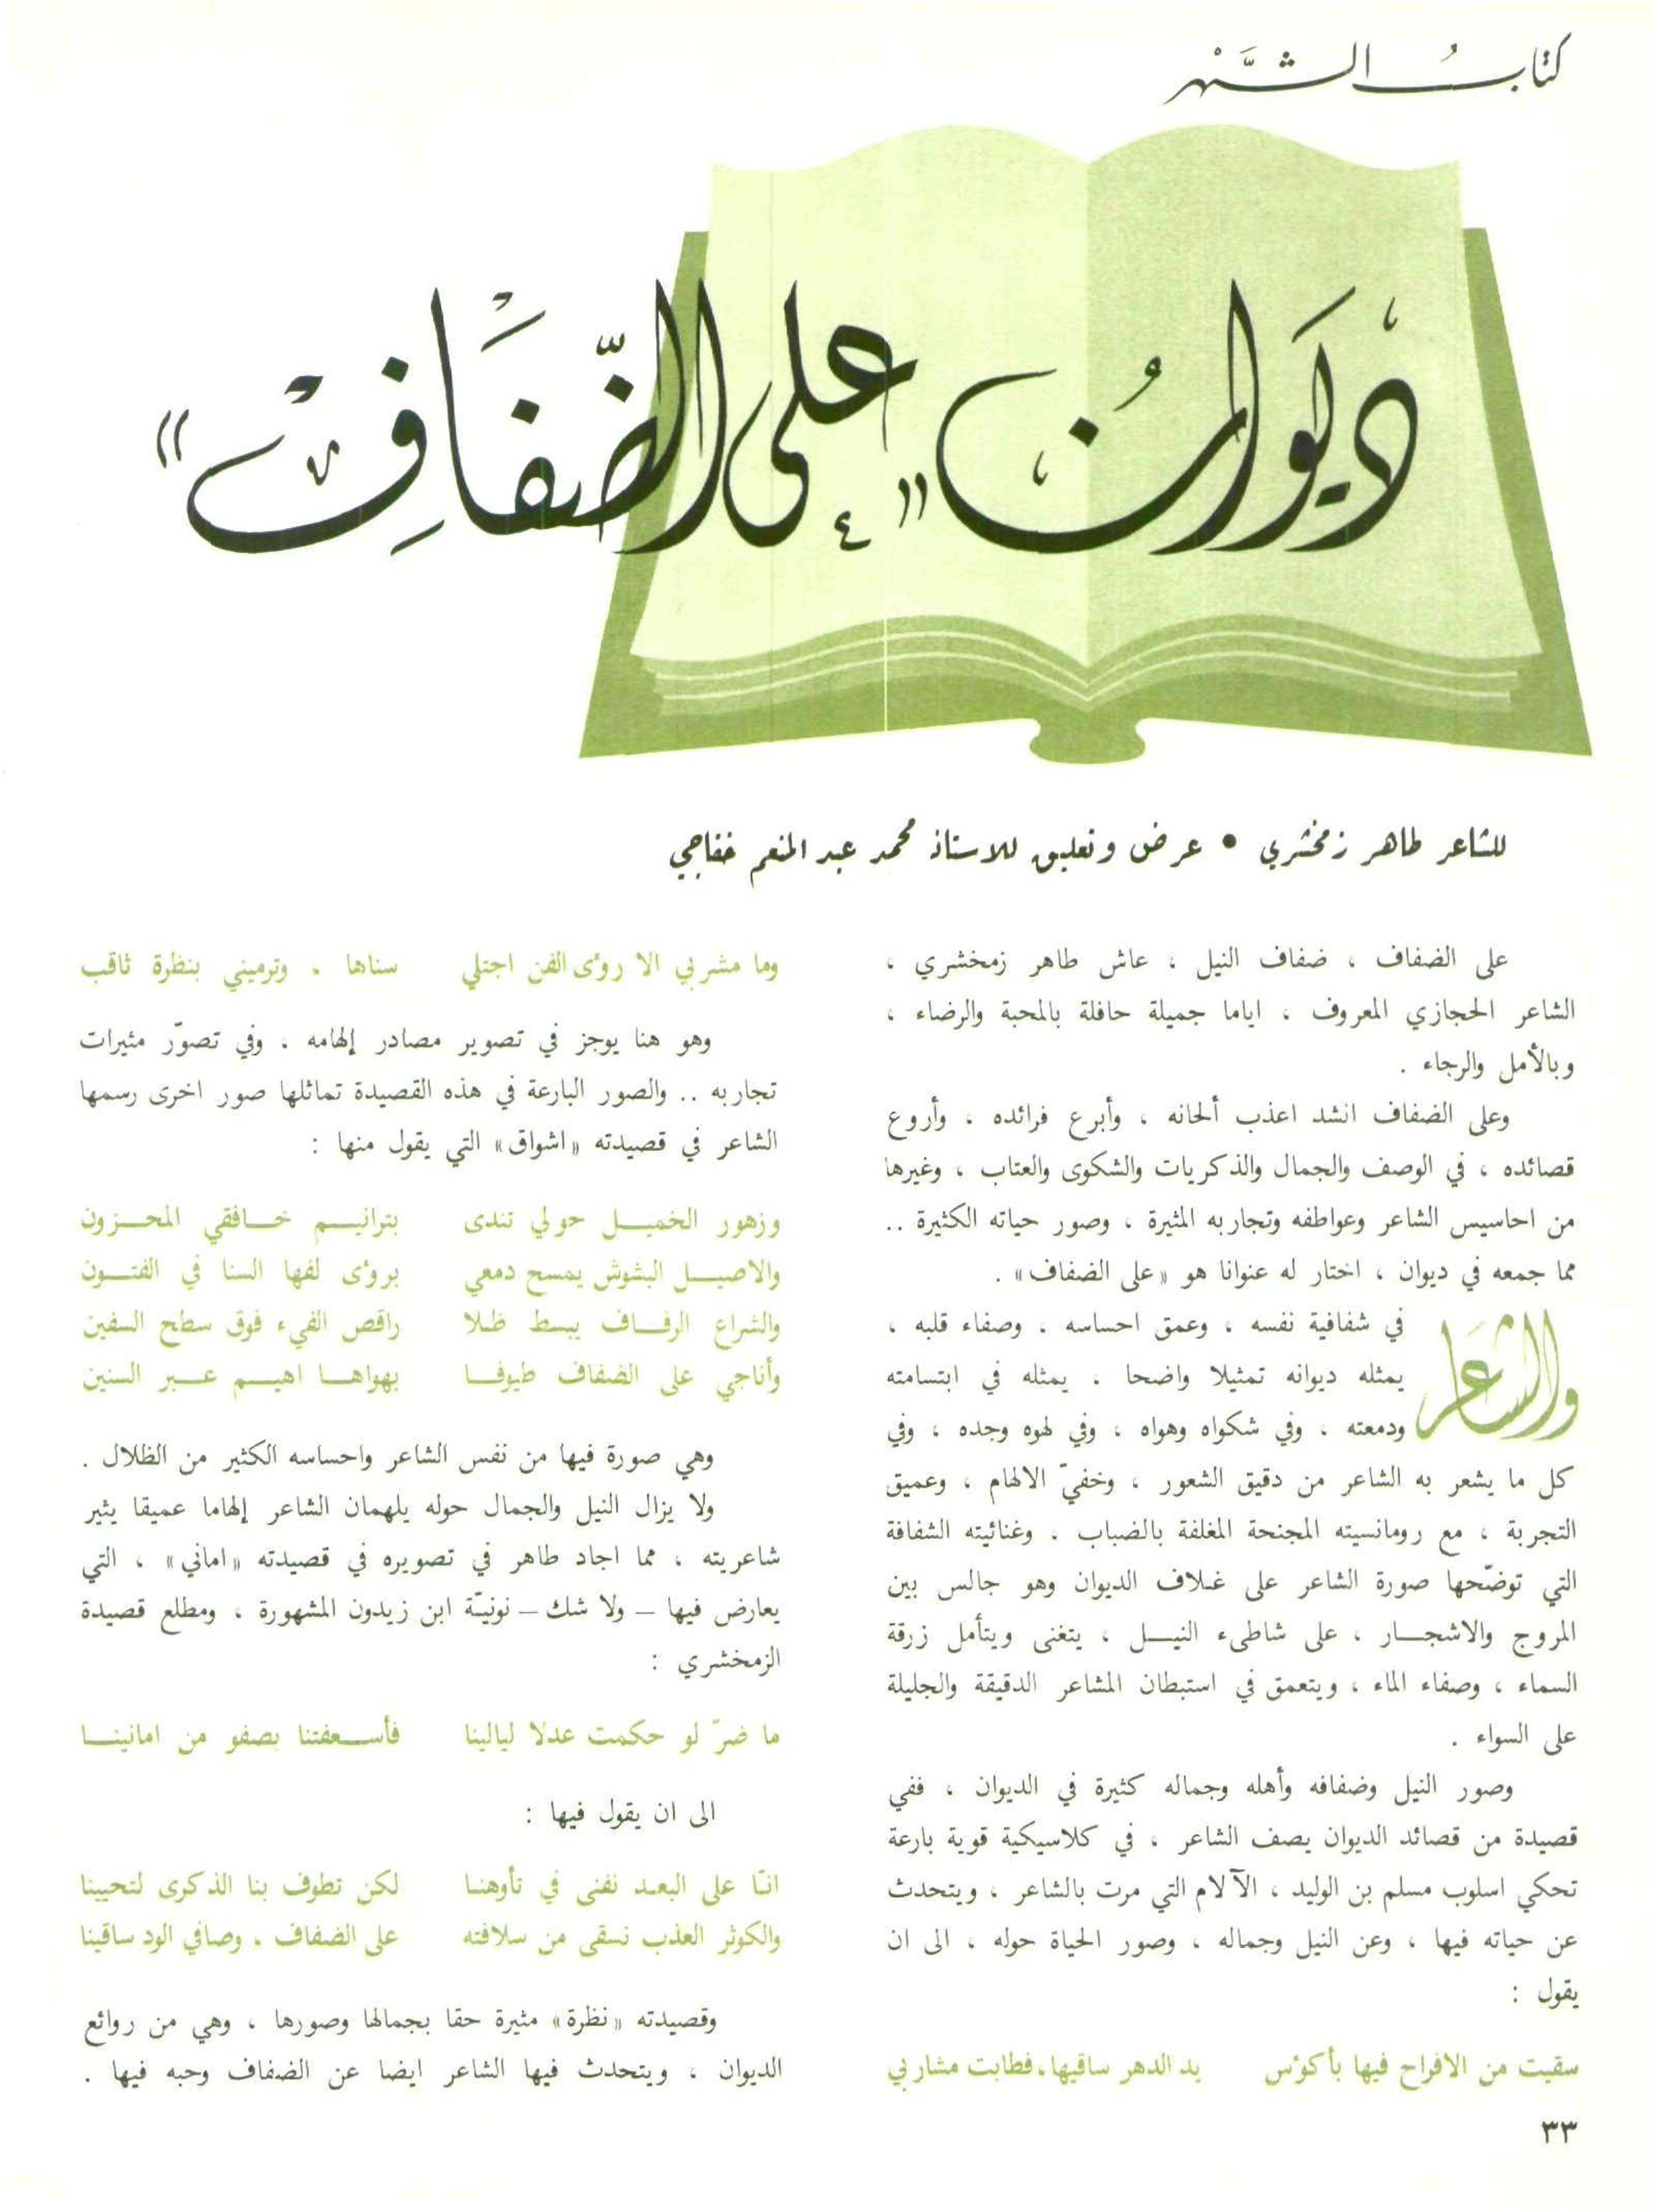 كتاب الشهر
ديوان «على الضفاف»
للشاعر طاهر زمخشري • عرض وتعليق للاستاذ محمد عبد المنعم خفاجي
على الضفاف ، ضفاف النيل ، عاش طاهر زمخشري ،
الشاعر الحجازي المعروف ، اياما جميلة حافلة بالمحبة والرضاء ،
وبالأمل والرجاء .
وعلى الضفاف انشد اعذب ألحانه ، وأبرع فرائده ، وأروع
قصائده ، في الوصف والجمال والذكريات والشكوى والعتاب ، وغيرها
من احاسيس الشاعر وعواطفه وتجاربه المثيرة ، وصور حياته الكثيرة ..
مما جمعه في ديوان ، اختار له عنوانا هو «على الضفاف» .
والشاعر في شفافية نفسه ، وعمق احساسه ، وصفاء قلبه ،
يمثله ديوانه تمثيلا واضحا . يمثله في ابتسامته
ودمعته ، وفي شكواه وهواه ، وفي لهوه وجده ، وفي
كل ما يشعر به الشاعر من دقيق الشعور ، وخفيّ الالهام ، وعميق
التجربة ، مع رومانسيته المجنحة المغلفة بالضباب . وغنائيته الشفافة
التي توضّحها صورة الشاعر على غلاف الديوان وهو جالس بين
المروج والاشجار ، على شاطىء النيل ، يتغنى ويتأمل زرقة
السماء ، وصفاء الماء ، ويتعمق في استبطان المشاعر الدقيقة والجليلة
على السواء .
وصور النيل وضفافه وأهله وجماله كثيرة في الديوان ، ففي
قصيدة من قصائد الديوان يصف الشاعر ، في كلاسيكية قوية بارعة
تحكي اسلوب مسلم بن الوليد ، الآلام التي مرت بالشاعر ، ويتحدث
عن حياته فيها ، وعن النيل وجماله ، وصور الحياة حوله ، الى ان
يقول :
سقيت من الافراح فيها بأكوٴس يد الدهر ساقيها،فطابت مشاربي
وما مشربي الا روٴى الفن اجتلي سناها ، وترميني بنظرة ثاقب
وهو هنا يوجز في تصوير مصادر إلهامه ، وفي تصوّر مثيرات
تجاربه .. والصور البارعة في هذه القصيدة تماثلها صور اخرى رسمها
الشاعر في قصيدته «اشواق» التي يقول منها :
وزهور الخميل حولي تندى بترانيم خافقي المحزون
والاصيل البشوش يمسح دمعي بروٴى لفها السنا في الفتون
والشراع الرفاف يبسط ظلا راقص الفيء فوق سطح السفين
وأناجي على الضفاف طيوفا بهواها اهيم عبر السنين
وهي صورة فيها من نفس الشاعر واحساسه الكثير من الظلال .
ولا يزال النيل والجمال حوله يلهمان الشاعر إلهاما عميقا يثير
شاعريته ، مما اجاد طاهر في تصويره في قصيدته «اماني» ، التي
يعارض فيها – ولا شك – نونيّة ابن زيدون المشهورة ، ومطلع قصيدة
الزمخشري :
ما ضرّ لو حكمت عدلا ليالينا فأسعفتنا بصفو من امانينا
الى ان يقول فيها :
انّا على البعد نفنى في تأوهنا لكن تطوف بنا الذكرى لتحيينا
والكوثر العذب نسقى من سلافته على الضفاف ، وصافي الود ساقينا
وقصيدته «نظرة» مثيرة حقا بجمالها وصورها ، وهي من روائع
الديوان ، ويتحدث فيها الشاعر ايضا عن الضفاف وحبه فيها .
٣٣